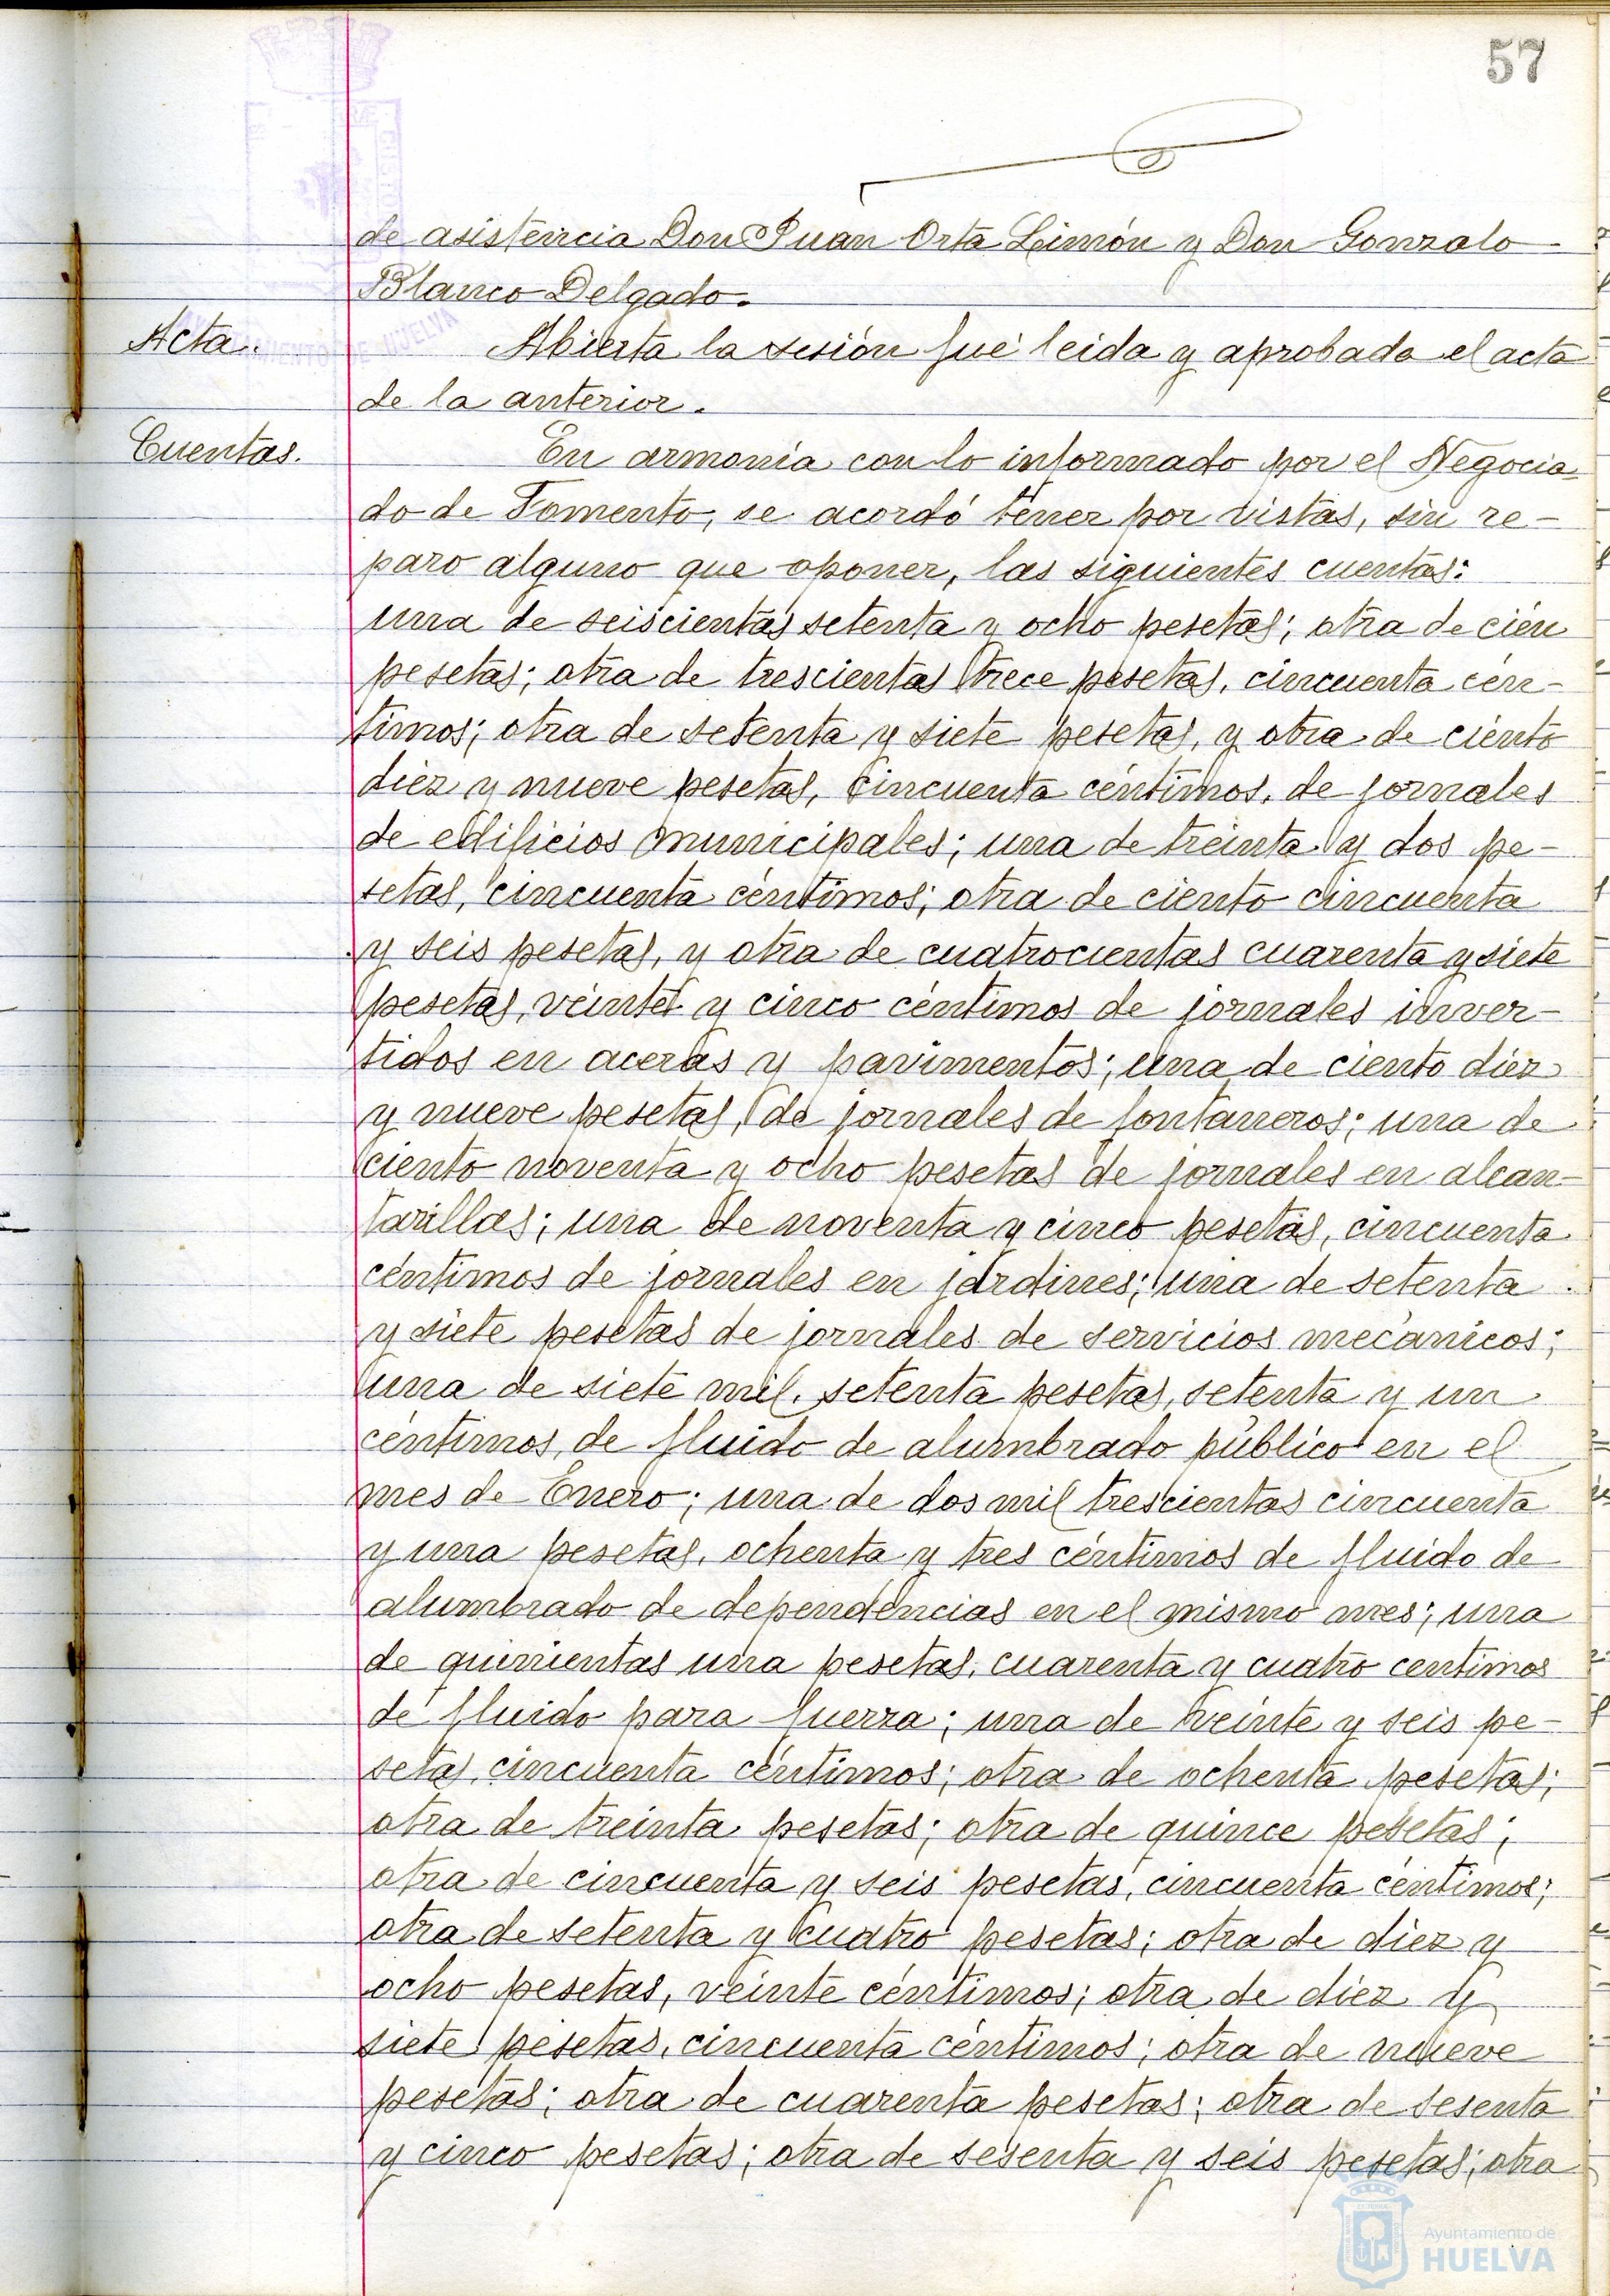 57
de asistencia Don Juan Orta Limón y Don Gonzalo
Blanco Delgado.
Acta.
Abierta la sesión fué leida y aprobada el acta
de la anterior.
Cuentas.
En armonía con lo informado por el Negocia-
do de Fomento, se acordó tener por vistas, sin re-
paro alguno que oponer, las siguientes cuentas:
una de seiscientas setenta y ocho pesetas; otra de cien
pesetas; otra de trescientas trece pesetas, cincuenta cén-
timos; otra de setenta y siete pesetas, y otra de ciento
diez y nueve pesetas, cincuenta céntimos, de jornales
de edificios municipales; una de treinta y dos pe-
setas, cincuenta céntimos; otra de ciento cincuenta
y seis pesetas, y otra de cuatrocientas cuarenta y siete
pesetas, veinte y cinco céntimos de jornales inver-
tidos en aceras y pavimentos; una de ciento diez
y nueve pesetas, de jornales de fontaneros; una de
ciento noventa y ocho pesetas de jornales en alcan-
tarillas; una de noventa y cinco pesetas, cincuenta
céntimos de jornales en jardines; una de setenta
y siete pesetas de jornales de servicios mecánicos;
una de siete mil, setenta pesetas, setenta y un
céntimos, de fluido de alumbrado público en el
mes de Enero; una de dos mil trescientas cincuenta
y una pesetas, ochenta y tres céntimos de fluido de
alumbrado de dependencias en el mismo mes; una
de quinientas una pesetas, cuarenta y cuatro centimos
de fluido para fuerza; una de veinte y seis pe-
setas, cincuenta céntimos; otra de ochenta pesetas;
otra de treinta pesetas; otra de quince pesetas;
otra de cincuenta y seis pesetas, cincuenta céntimos;
otra de setenta y cuatro pesetas; otra de diez y
ocho pesetas, veinte céntimos; otra de diez y
siete pesetas, cincuenta céntimos; otra de nueve
pesetas; otra de cuarenta pesetas; otra de sesenta
y cinco pesetas; otra de sesenta y seis pesetas; otra
Ayuntamiento de
HUELVA